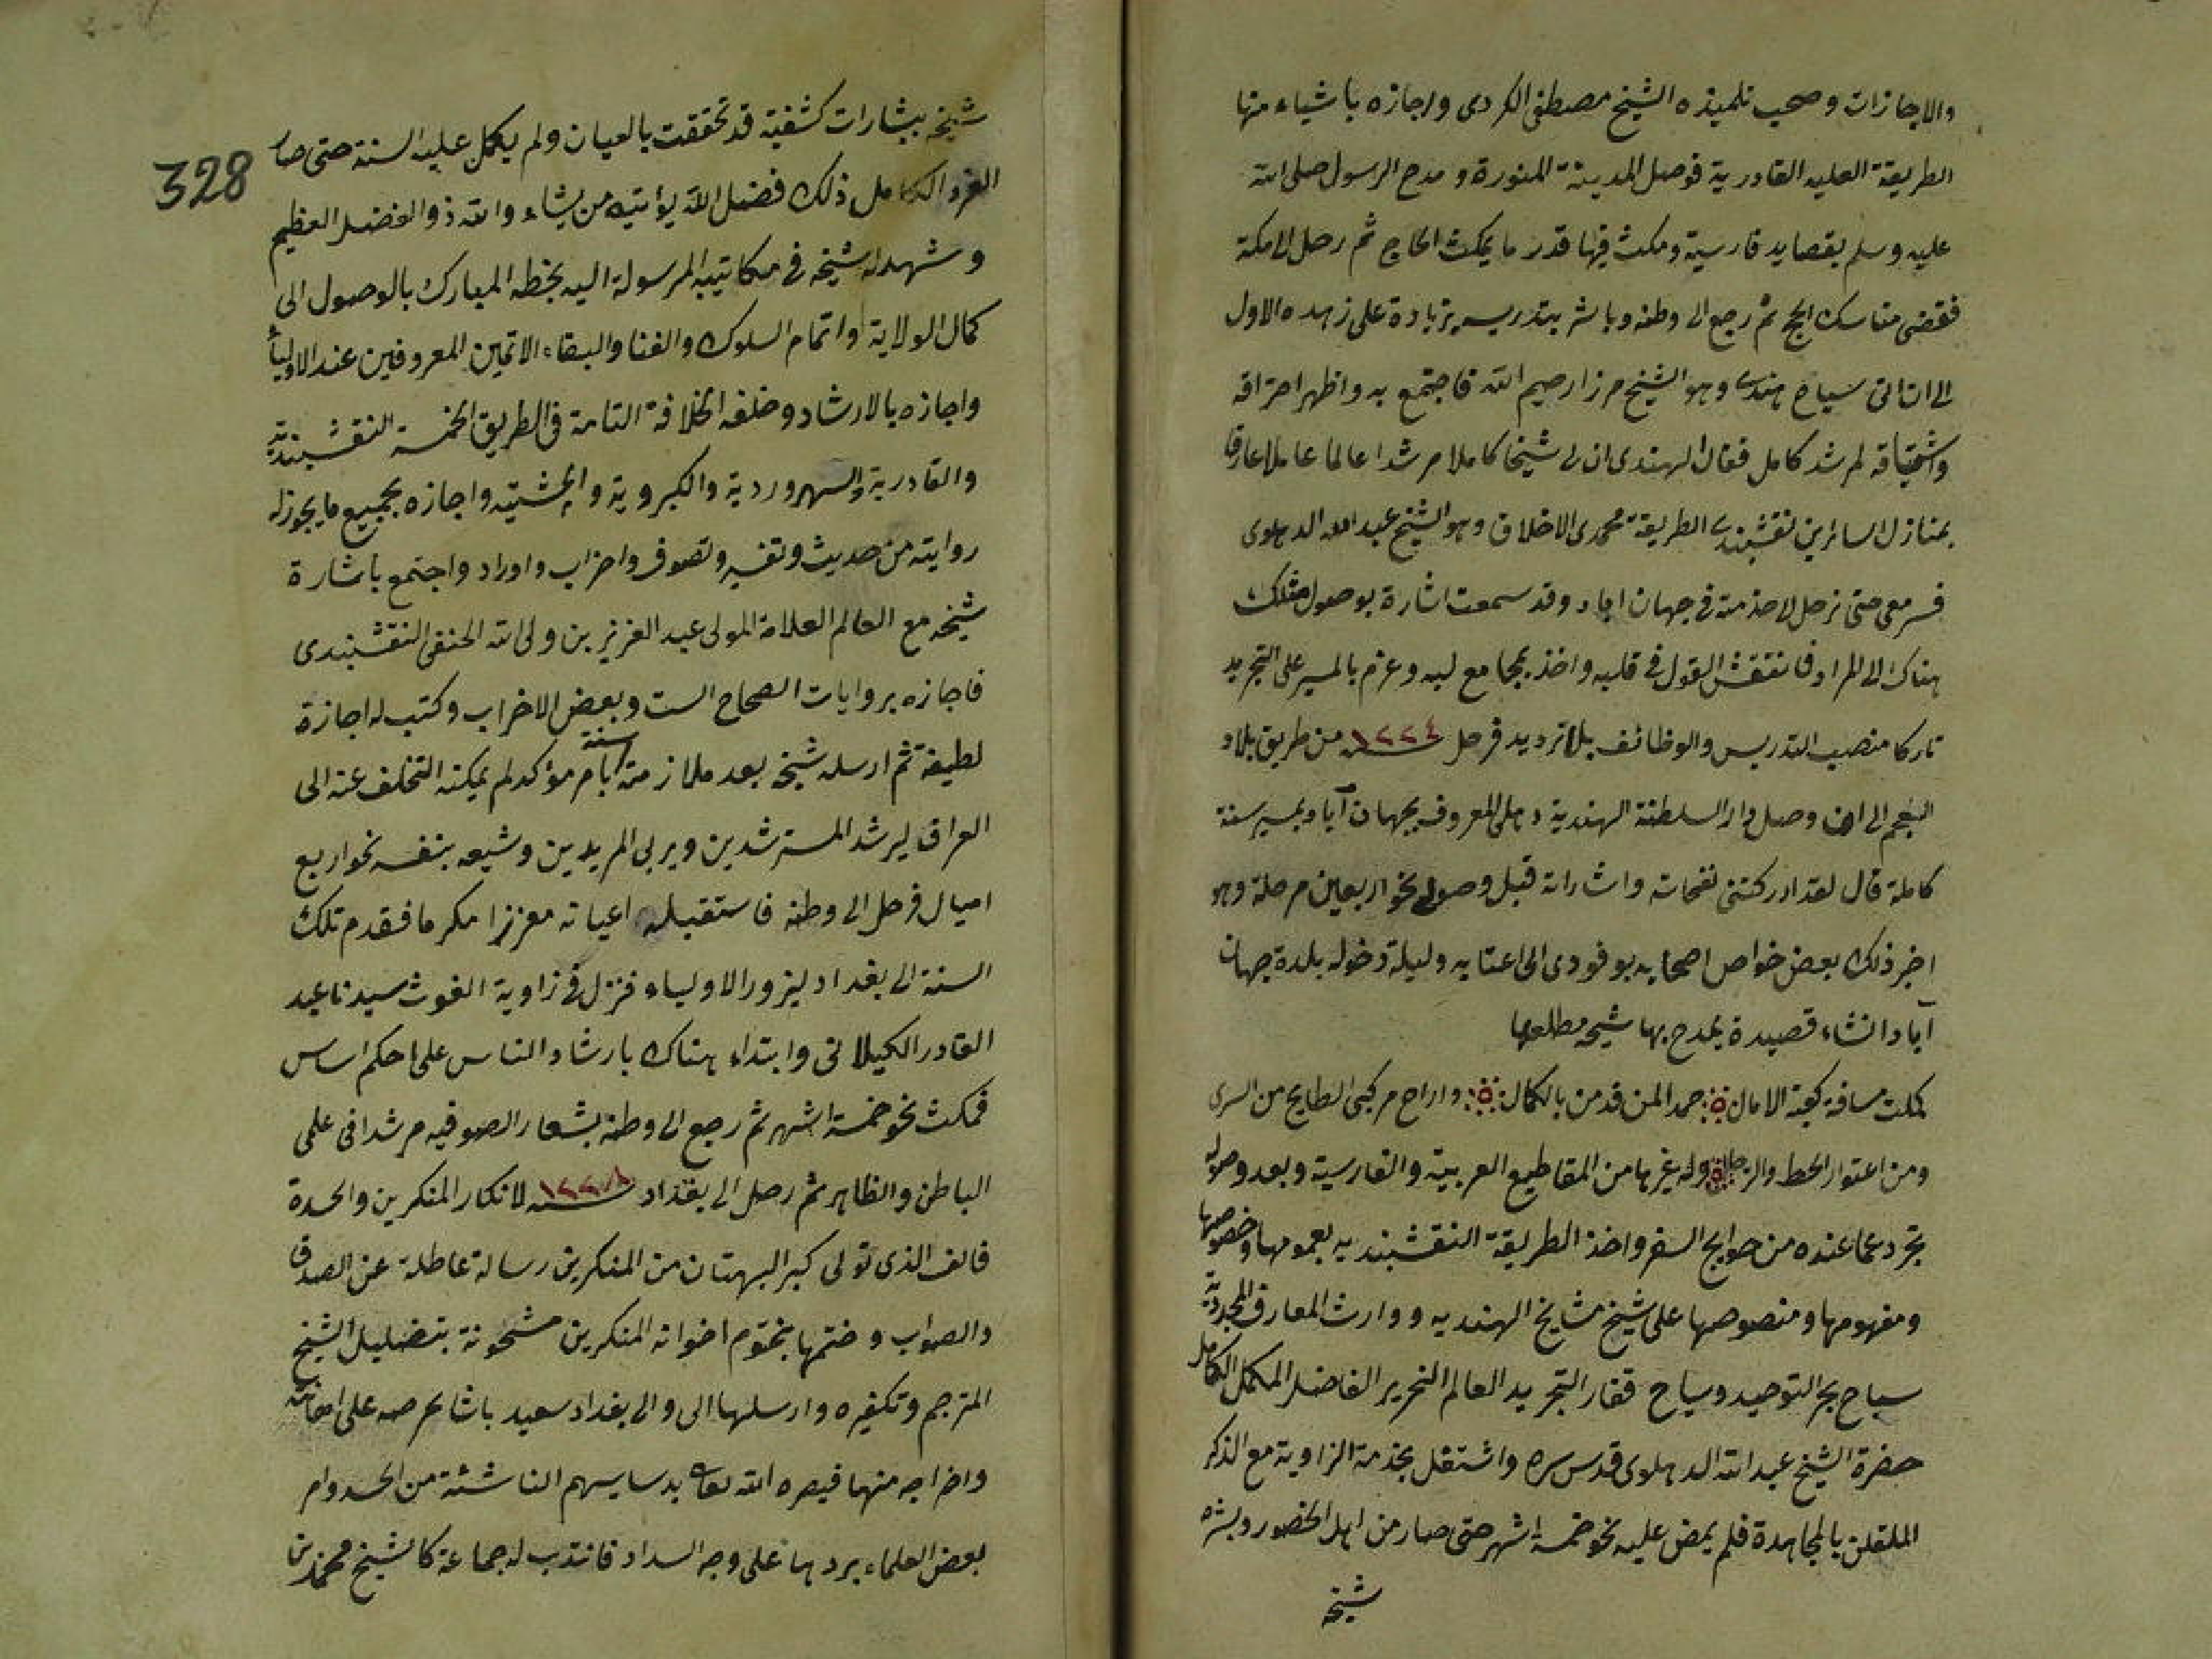 والاجازات وصحب تلميذه الشيخ مصطفى الكردى واجازه باشياء منها
الطريقة العليه القادرية فوصل المدينة المنورة ومدح الرسول صلى الله
عليه وسلم بقصايد فارسية ومكث فيها قدر ما يمكث الحاج ثم رحل الى مكة
فقضى مناسك الحج ثم رجع الى وطنه وباشر بتدريسه بزيادة على زهده الاول
الى ان اتى سياح هندى وهو الشيخ مرزا رحيم الله فاجتمع به واظهر احتراقه
واشتياقه لمرشد كامل فقال الهندى ان لى شيخا كاملا مرشدا عالما عاملا عارفا
بمنازل السائرين نقشبندى الطريقة محمدى الاخلاق وهو الشيخ عبد الله الدهلوى
فسر معى حتى نرحل لخدمته فى جهان اباد وقد سمعت اشارة بوصول مثلك
هناك الى المراد فانتقش القول فى قلبه واخذ بمجامع لبه وعزم بالمسير على التجريد
تاركا منصب التدريس والوظائف بلا ترديد فرحل سنه ١٢٢٤ من طريق بلاد
العجم الى ان وصل دار السلطنة الهندية دهلى المعروف بجهان آباد بمسير سنة
كاملة قال لقد ادركتنى نفحاته واشاراته قبل وصولى بنحو اربعين مرحلة وهو
اخبر ذلك بعض خواص اصحابه بوفودى الى اعتابه وليلة دخوله بلدة جهان
آباد انشاء قصيدة يمدح بها شيخه مطلعها
كملت مسافة كعبة الامال ۞ حمدا لمن قد من بالاكمال ۞ واراح مركبى الطايح من السرى
ومن اعتوار الحط والترحال ۞ وله غيرها من المقاطيع العربية والفارسية وبعد وصوله
تجرد عما عنده من حوايج السفر واخذ الطريقة النقشبنديه بعمومها وخصوصها
ومفهومها ومنصوصها على شيخ مشايخ الهنديه ووارث المعارف المجددية
سباح بحر التوحيد وسياح قفار التجريد العالم النحرير الفاضل المكمل الكامل
حضرة الشيخ عبد الله الدهلوى قدس سره واشتغل بخدمة الزاوية مع الذكر
الملقن بالمجاهدة فلم يمض عليه نحو خمسة اشهر حتى صار من اهل الحضور وبشره
شيخه
328
شيخه ببشارات كشفية قد تحققت بالعيان ولم يكمل عليه السنة حتى صار
الفرد الكامل ذلك فضل الله يؤتيه من يشاء والله ذو الفضل العظيم
وشهد له شيخه فى مكاتيبه المرسولة اليه بخطه المبارك بالوصول الى
كمال الولاية واتمام السلوك والفنا والبقاء الاتمين المعروفين عند الاولياء
واجازه بالارشاد وخلفه الخلافة التامة فى الطريق الخمسة النقشبندية
والقادرية والسهروردية والكبروية والچشتيه واجازه بجميع ما يجوز له
روايته من حديث وتفسير وتصوف واحزاب واوراد واجتمع باشارة
شيخه مع العالم العلامة المولى عبد العزيز بن ولى الله الحنفى النقشبندى
فاجازه بروايات الصحاح الست وبعض الاحزاب وكتب له اجازة
لطيفة ثم ارسله شيخه بعد ملازمته سنة بامر مؤكد لم يمكنه التخلف عنه الى
العراق ليرشد المسترشدين ويربى المريدين وشيعه بنفسه نحو اربع
اميال فرحل الى وطنه فاستقبله اعيانه معززا مكرما فقدم تلك
السنة الى بغداد ليزور الاولياء فنزل فى زاوية الغوث سيدنا عبد
القادر الكيلانى وابتداء هناك بارشاد الناس على احكم اساس
فمكث نحو خمسة اشهر ثم رجع الى وطنه بشعار الصوفيه مرشدا فى علمى
الباطن والظاهر ثم رحل الى بغداد سنه ١٢٢٨ لانكار المنكرين والحسدة
فالف الذى تولى كبر البهتان من المنكرين رسالة عاطلة عن الصدق
والصواب وختمها بختوم اخوانه المنكرين مشحونة بتضليل الشيخ
المترجم وتكفيره وارسلها الى والى بغداد سعيد باشا يحرصه على اهانته
واخراجه منها فبصره الله تعالى بدسايسهم الناشئة من الحسد وامر
بعض العلماء بردها على وجه السداد فانتدب له جماعة كالشيخ محمد بن